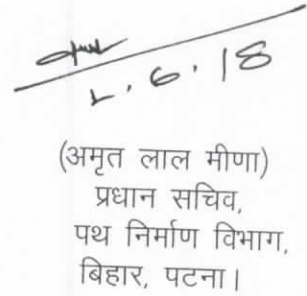 6.18
(अमृत लाल मीणा)
प्रधान सचिव,
पथ निर्माण विभाग,
बिहार, पटना।